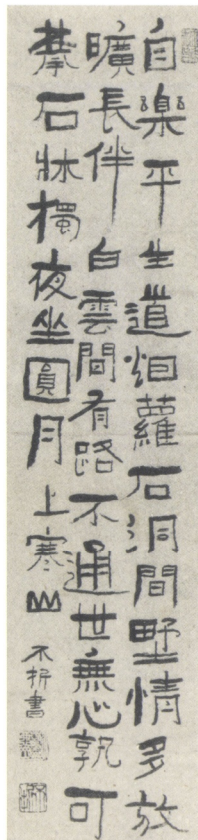 自樂平生道烟蘿石洞間野情多放
曠長伴白雲間有路不通世無心孰可
攀石牀獨夜坐圓月上寒山
不折書